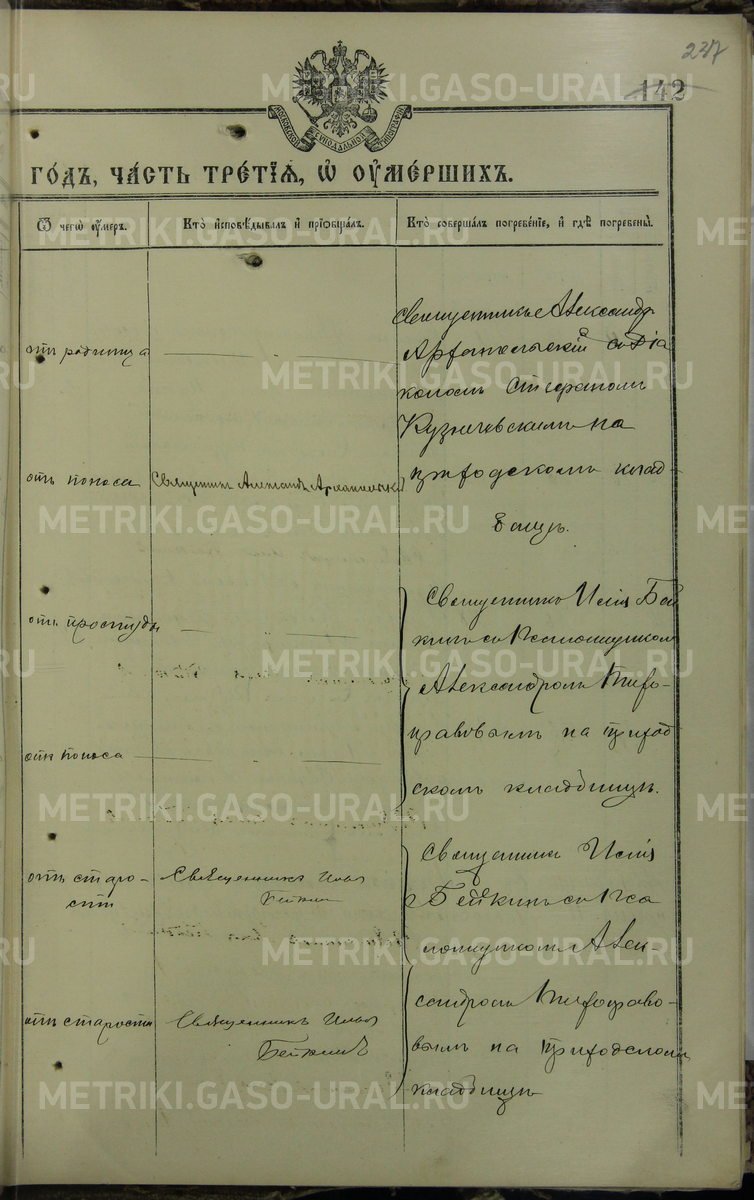 237
142
МОСКОВСКОЙ СѴНОДАЛЬНОЙ ТИПОГРАФІИ
ГО́ДЪ, ЧА́СТЬ ТРЕ́ТІѦ, Ѽ ОУ҆МЕ́РШИХЪ.
Ѿ чегѡ̀ оу҆́меръ.
Кто̀ и҆сповѣ́дывалъ и҆ прїѡбща́лъ.
Кто̀ соверша́лъ погребе́нїе, и҆ гдѣ̀ погребены̀.
отъ родимца
Священникъ Александръ
Архангельскій съ діа
кономъ Стефаномъ
Кузнечевскимъ на
приходскомъ клад-
бищѣ.
отъ поноса
Священникъ Александръ Архангельскій
отъ простуды
Священникъ Илія Бей
кинъ съ Псаломщикомъ
Александромъ
на приход
скомъ кладбищѣ.
отъ поноса
отъ старо-
сти
Священникъ Илья
Бейкинъ
Священникъ Илія
Бейкинъ съ Пса
ломщикомъ Алек
сандромъ
вымъ на приходскомъ
кладбищѣ
отъ старости
Священникъ Илья
Бейкинъ
METRIKI.GASO-URAL.RU